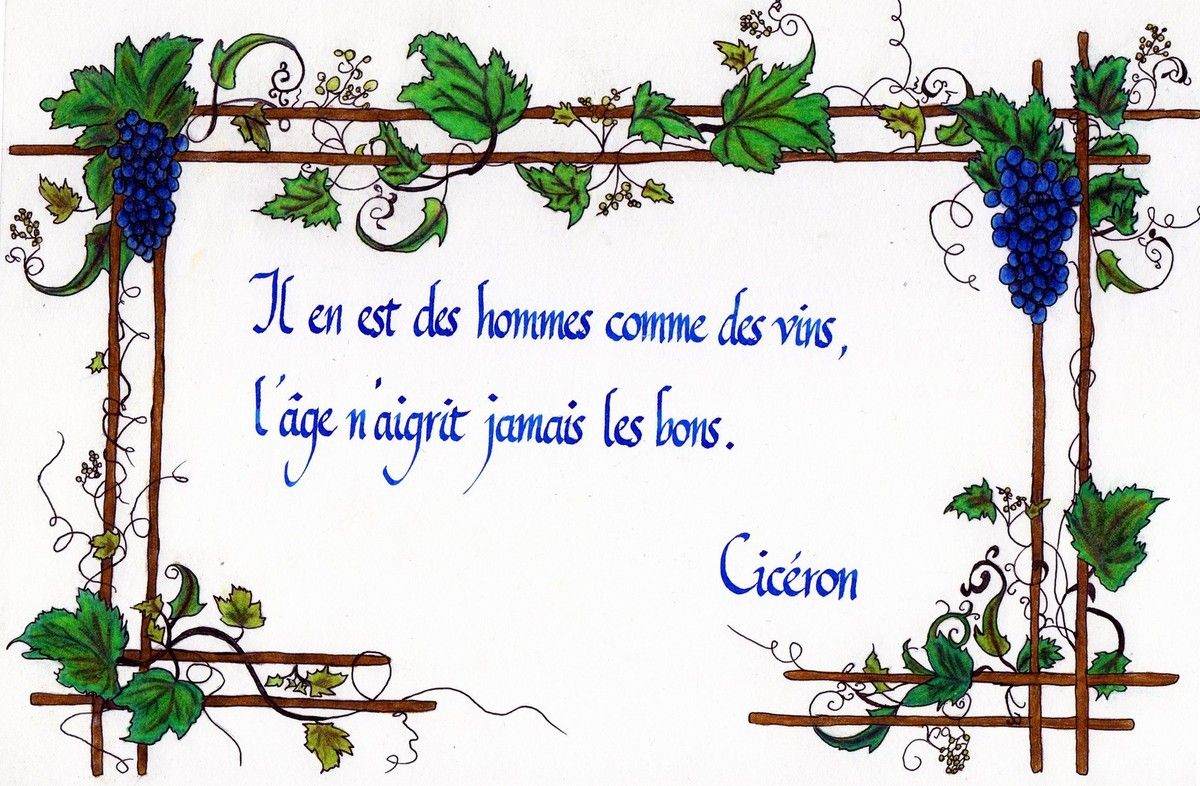 Il en est des hommes comme des vins,
l'âge n'aigrit jamais les bons.
Cicéron